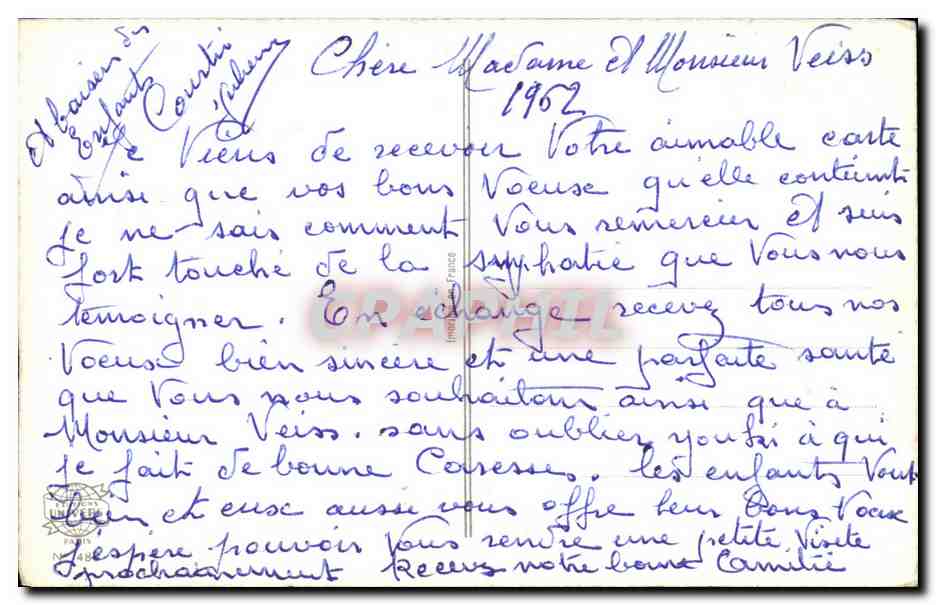 Chère Madame et Monsieur Veiss
1962
Je Viens de recevoir Votre aimable carte
ainsi que vos bons Voeux qu'elle contient
je ne sais comment Vous remercier Et suis
fort touché de la symphatie que Vous nous
temoigner. En échange recevez tous nos
Voeux bien sincère et une parfaite santé
que Vous nous souhaitons ainsi que à
Monsieur Veiss. sans oublier youki à qui
je fait de bonne Caresse. les enfants Vont
bien et eux aussi vous offre leur Bons Voeux
J'espère pouvoir Vous rendre une petite Visite
prochainement Recevez notre bonne
Et baisers des
Enfants
Imprimé en France
EDITIONS
UNIVERS
PARIS
CPAPHIL